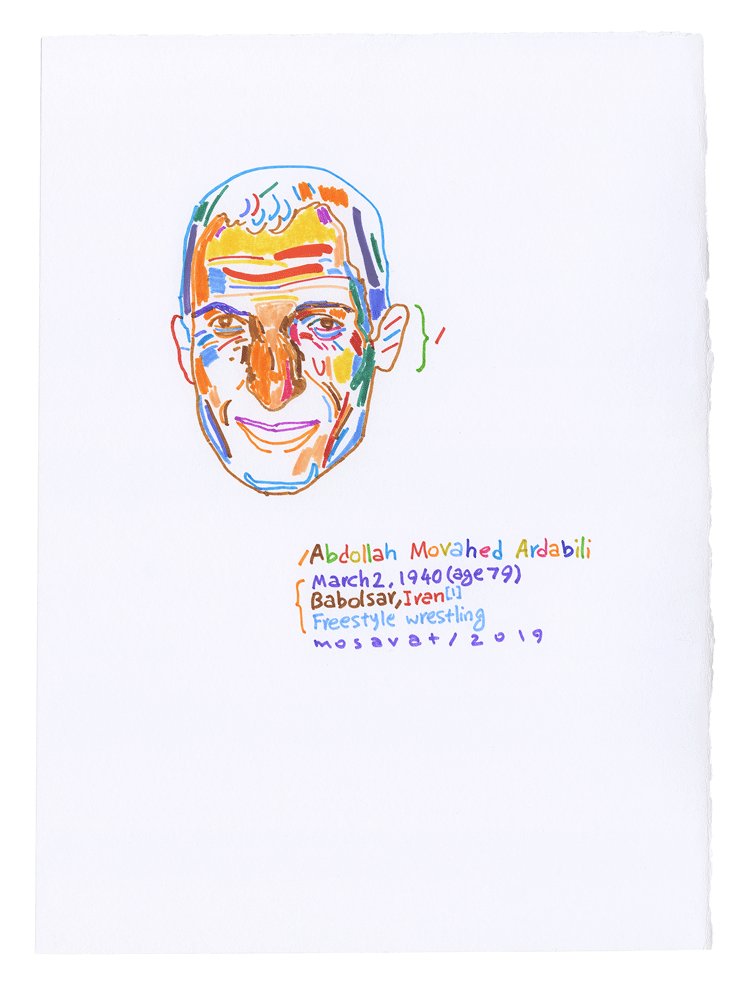 Abdollah Movahed Ardabili
March 2, 1940 (age 79)
Babolsar, Iran[1]
Freestyle wrestling
mosavat / 2019